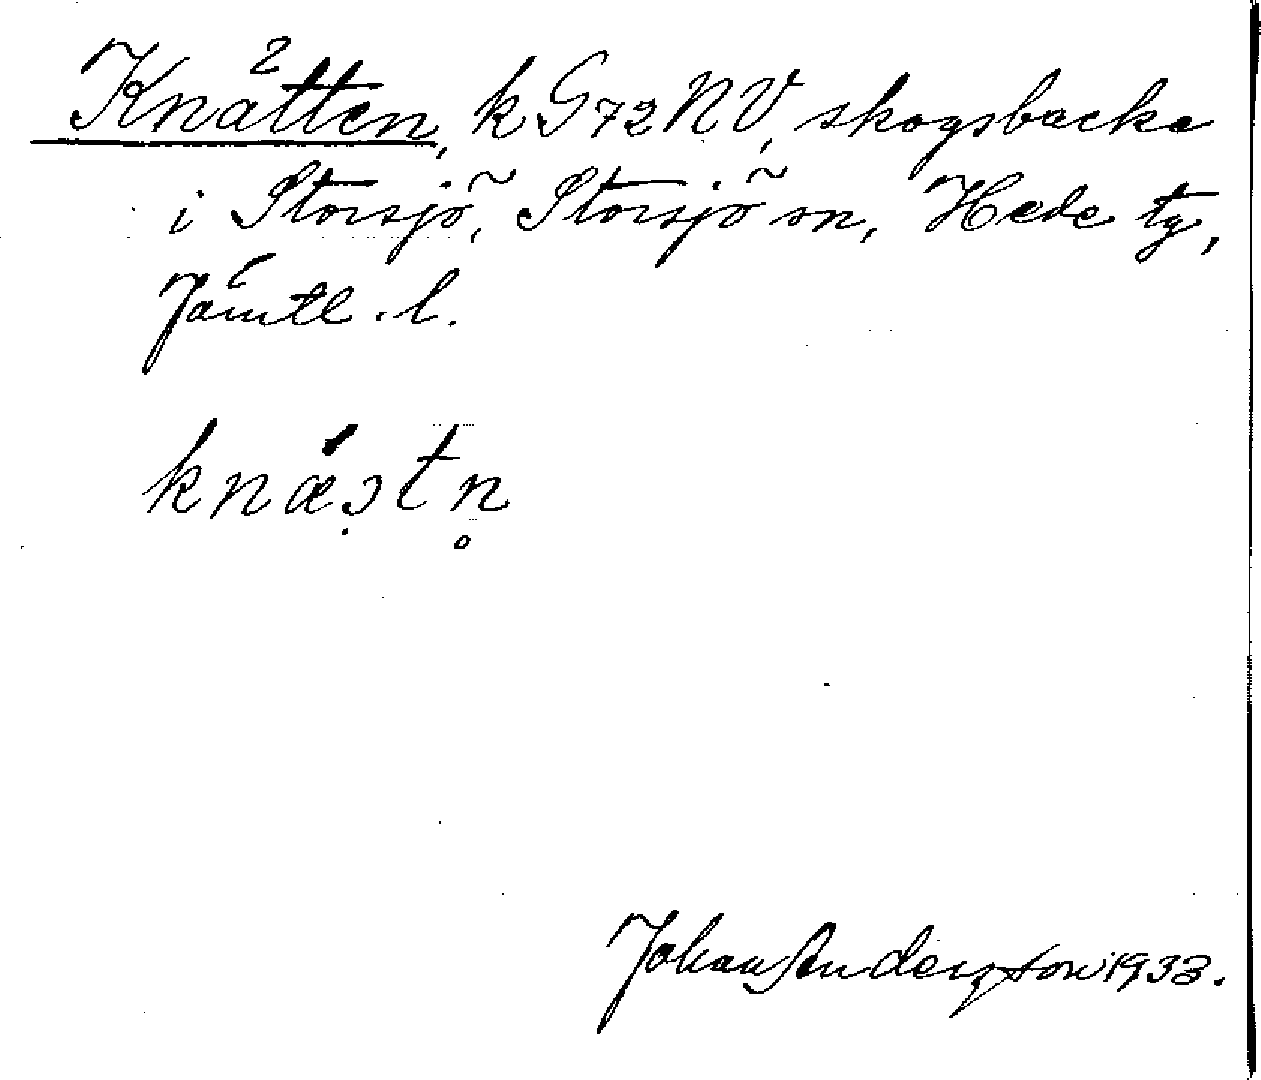 Knätten, k G72NV, skogsbacke
i Storsjö, Storsjö sn, Hede tg,
Jämtl. l.
knæ̀ɔtn̥
Johan Andersson 1933.